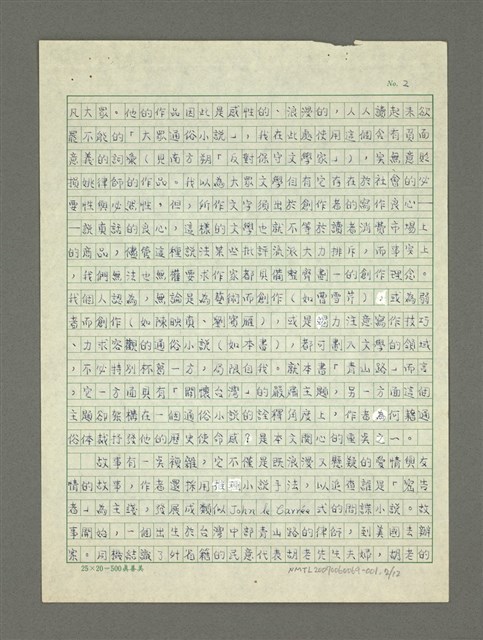 No. 2
凡大眾。他的作品因此是感性的、浪漫的，人人讀起來欲
罷不能的「大眾通俗小說」，我在此處使用這個含有負面
意義的詞彙（見南方朔「反對保守文學家」），實無意貶
損姚律師的作品。我以為大眾文學自有它存在於社會的必
要性與必然性，但，所作文字須出於創作者的寫作良心—
—說真話的良心，這樣的文學也就不等於讀者消費市場上
的商品，儘管這種說法某些批評流派大力排斥，而事實上
，我們無法也無權要求作家都具備整齊劃一的創作理念。
我個人認為，無論是為藝術而創作（如曹雪芹），或為弱
者而創作（如陳映真、劉賓雁），或是竭力注意寫作技巧
、力求客觀的通俗小說（如本書），都可劃入文學的領域
，不必特別標舉一方，局限自我。就本書「青山路」而言
，它一方面具有「關懷台灣」的嚴肅主題，另一方面這個
主題卻架構在一個通俗小說的詮釋角度上，作者為何藉通
俗体裁抒發他的歷史使命感？是本文關心的重点之一。
故事有一点複雜，它不僅是既浪漫又懸疑的愛情與友
情的故事，作者還採用推理小說手法，以追查誰是「密告
者」為主綫，發展成類似John le Carrée式的間諜小說。故
事開始，一個出生於台灣中部青山路的律師，到美國去辦
案。同機結識了外省籍的民意代表胡老先生夫婦，胡老的
25×20=500
NMTL20090060069-001. 2/12